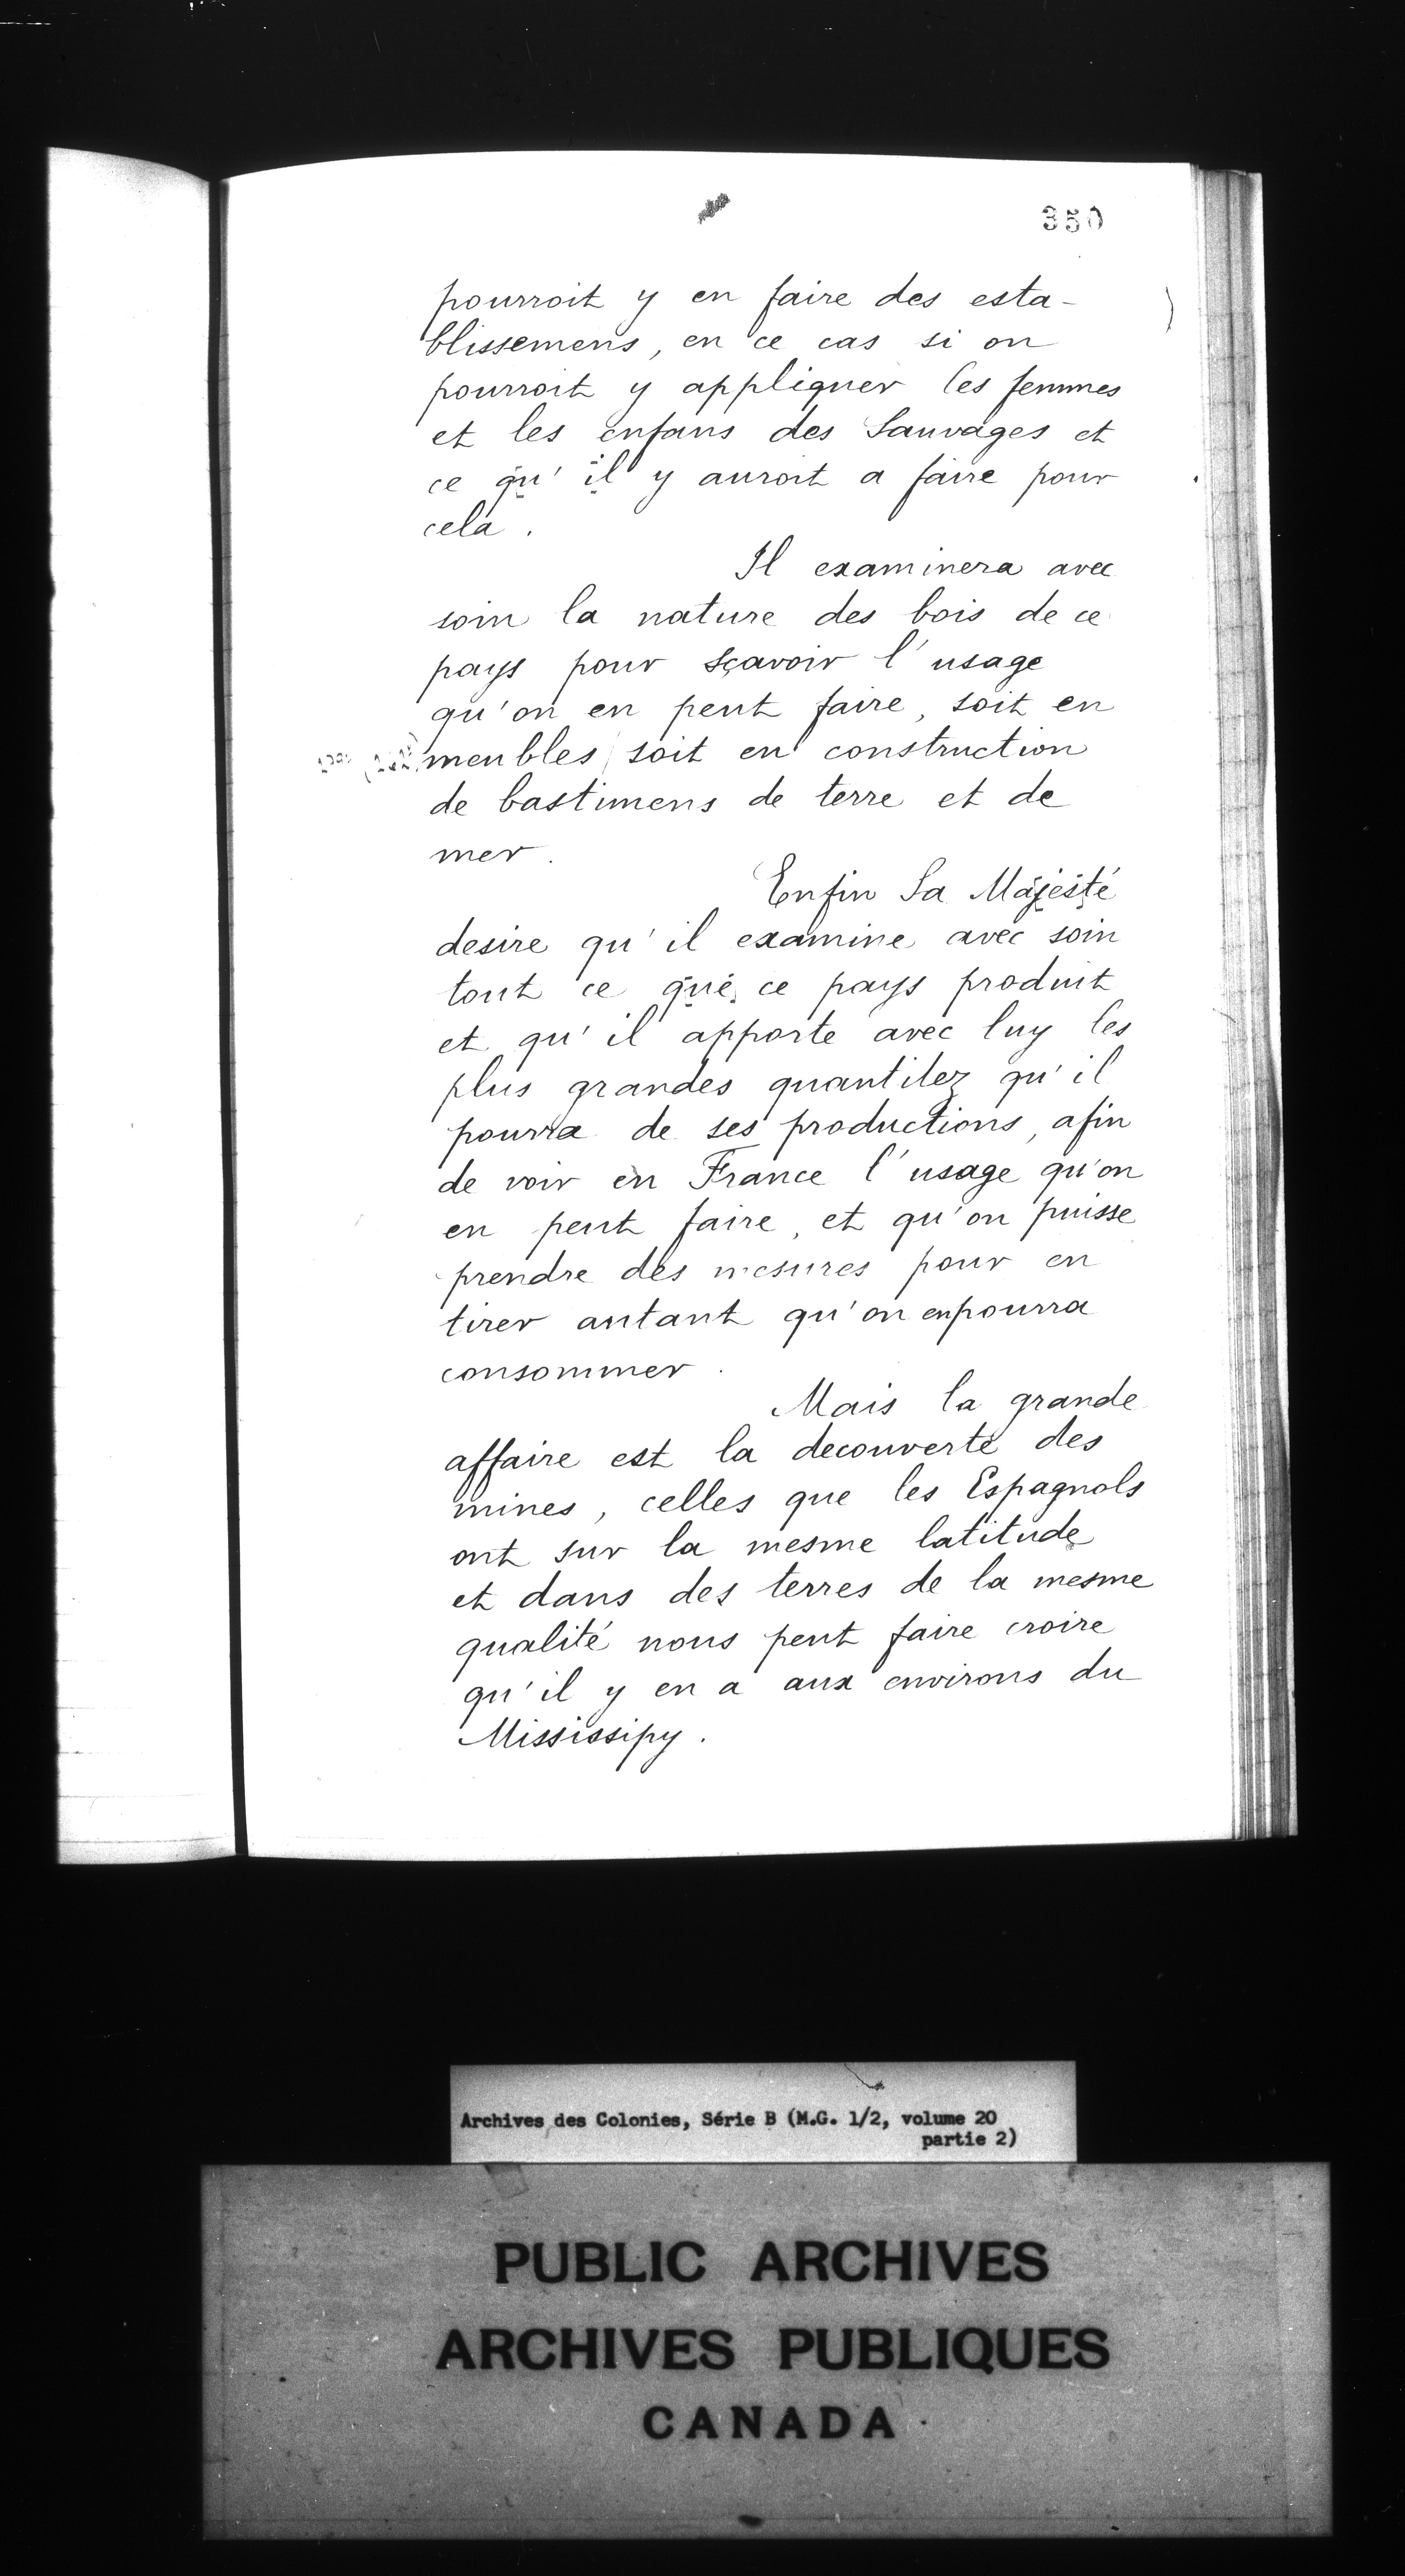 350
pourroit y en faire des esta-
blissemens, en ce cas si on
pourroit y appliquer les femmes
et les enfans des Sauvages et
ce qu'il y auroit a faire pour
cela.
Il examinera avec
soin la nature des bois de ce
pays pour sçavoir l'usage
qu'on en peut faire, soit en
meubles soit en construction
de bastimens de terre et de
mer.
Enfin Sa Majesté
desire qu'il examine avec soin
tout ce que ce pays produit
et qu'il apporte avec luy les
plus grandes quantitez qu'il
pourra de ses productions, afin
de voir en France l'usage qu'on
en peut faire, et qu'on puisse
prendre des mesures pour en
tirer autant qu'on en pourra
consommer.
Mais la grande
affaire est la decouverte des
mines, celles que les Espagnols
ont sur la mesme latitude
et dans des terres de la mesme
qualité nous peut faire croire
qu'il y en a aux environs du
Mississipy.
Archives des Colonies, Série B (M.G. 1/2, volume 20
partie 2)
PUBLIC ARCHIVES
ARCHIVES PUBLIQUES
CANADA